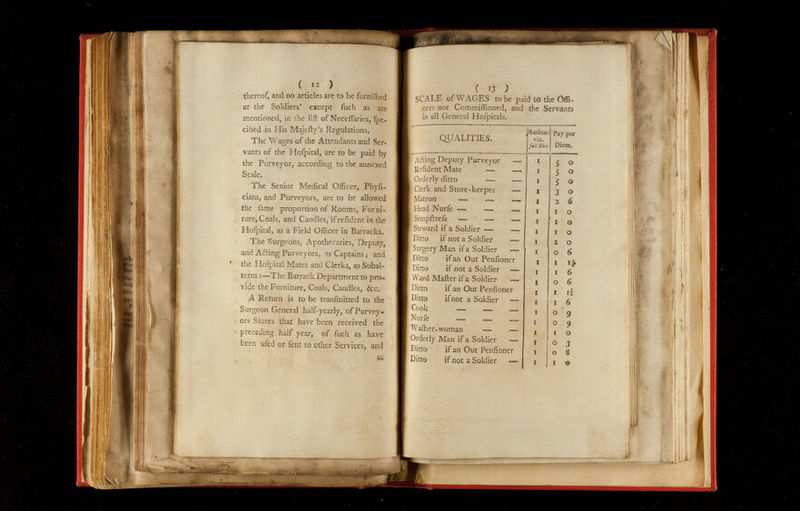 ( 12 )
thereof, and no articles are to be furniſhed
at the Soldiers' except ſuch as are
mentioned, in the liſt of Neceſſaries, ſpe-
cified in His Majeſty's Regulations.
The Wages of the Attendants and Ser-
vants of the Hoſpital, are to be paid by
the Purveyor, according to the annexed
Scale.
The Senior Medical Officer, Phyſi-
cians, and Purveyors, are to be allowed
the ſame proportion of Rooms, Furni-
ture, Coals, and Candles, if reſident in the
Hoſpital, as a Field Officer in Barracks.
The Surgeons, Apothecaries, Deputy,
and Acting Purveyors, as Captains; and
the Hoſpital Mates and Clerks, as Subal-
terns:—The Barrack Department to pro-
vide the Furniture, Coals, Candles, &c.
A Return is to be tranſmitted to the
Surgeon General half-yearly, of Purvey-
ors Stores that have been received the
preceding half year, of ſuch as have
been uſed or ſent to other Services, and
( 13 )
SCALE of WAGES to be paid to the Offi-
cers not Commiſſioned, and the Servants
in all General Hoſpitals.
QUALITIES. Rations viz. full Diet Pay per Diem.
Acting Deputy Purveyor — 1 5 0
Reſident Mate — — 1 5 0
Orderly ditto — — 1 5 0
Clerk and Store-keeper — 1 3 0
Matron — — — 1 2 6
Head Nurſe — — — 1 1 0
Sempſtreſs — — — 1 1 0
Steward if a Soldier — — 1 1 0
Ditto if not a Soldier — 1 2 0
Surgery Man if a Soldier — 1 0 6
Ditto if an Out Penſioner 1 1 1½
Ditto if not a Soldier — 1 1 6
Ward Maſter if a Soldier — 1 0 6
Ditto if an Out Penſioner 1 1 1½
Ditto if not a Soldier — 1 1 6
Cook — — — 1 0 9
Nurſe — — — 1 0 9
Waſher-woman — — 1 1 0
Orderly Man if a Soldier — 1 0 3
Ditto if an Out Penſioner 1 0 8
Ditto if not a Soldier — 1 1 0